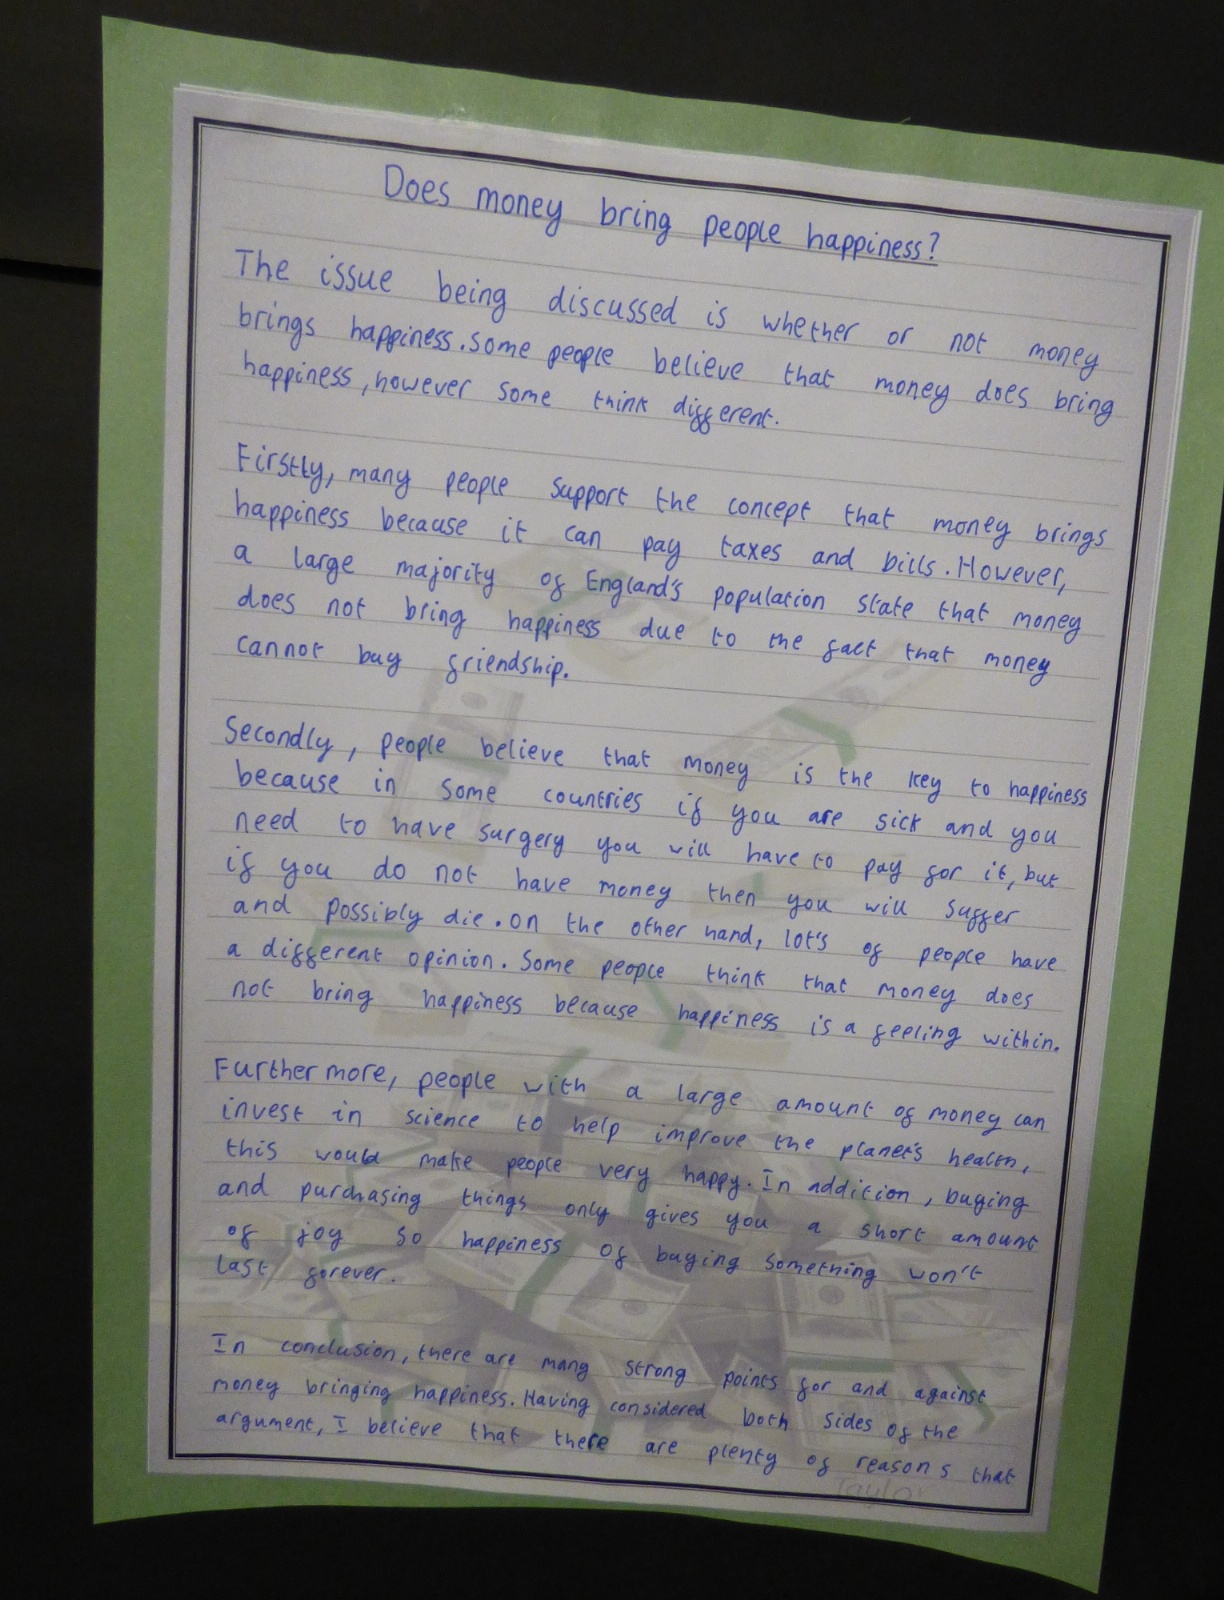 Does money bring people happiness?
The issue being discussed is whether or not money
brings happiness. Some people believe that money does bring
happiness, however some think different.
Firstly, many people support the concept that money brings
happiness because it can pay taxes and bills. However,
a large majority of England's population state that money
does not bring happiness due to the fact that money
cannot buy friendship.
Secondly, people believe that money is the key to happiness
because in some countries if you are sick and you
need to have surgery you will have to pay for it, but
if you do not have money then you will suffer
and possibly die. On the other hand, lot's of people have
a different opinion. Some people think that money does
not bring happiness because happiness is a feeling within.
Furthermore, people with a large amount of money can
invest in science to help improve the planet's health,
this would make people very happy. In addition, buying
and purchasing things only gives you a short amount
of joy so happiness of buying something won't
last forever.
In conclusion, there are many strong points for and against
money bringing happiness. Having considered both sides of the
argument, I believe that there are plenty of reasons that
Taylor